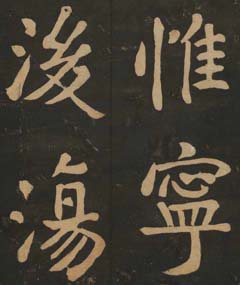 惟寧
後湯